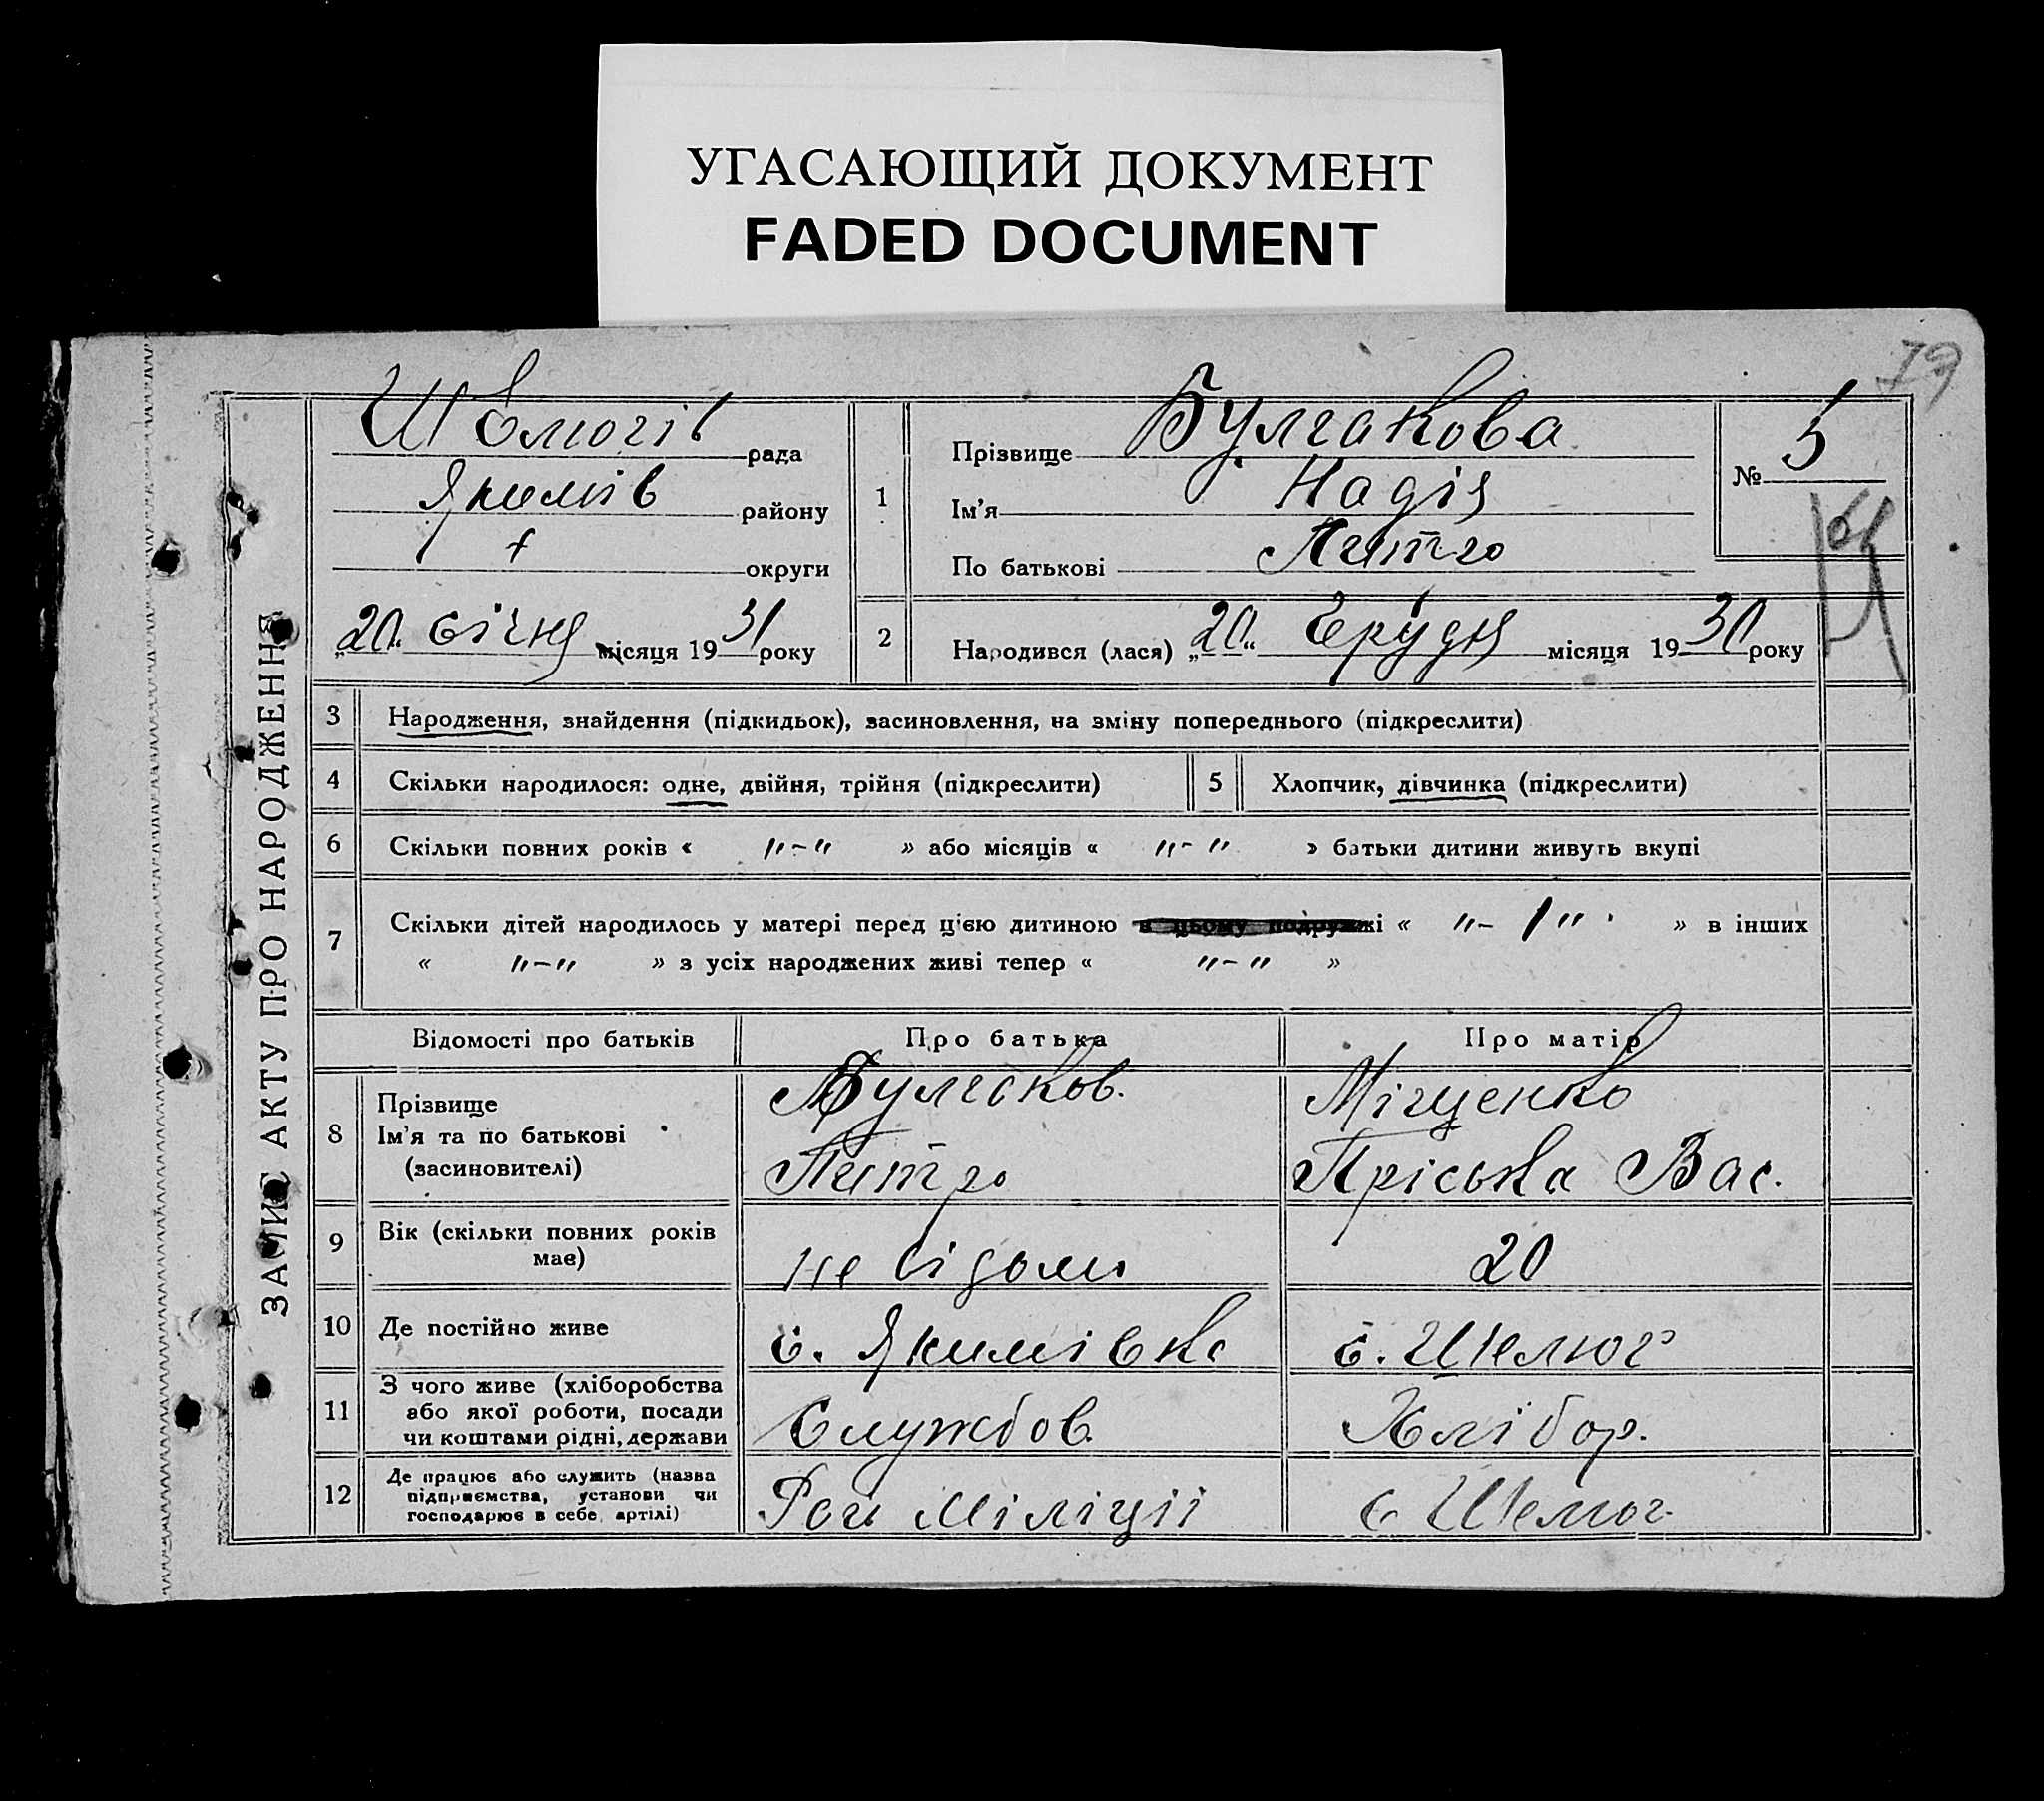 УГАСАЮЩИЙ ДОКУМЕНТ
FADED DOCUMENT
79
ЗАПИС АКТУ ПРО НАРОДЖЕННЯ
Шелюгів рада
Якимів району
округи
„20“ січня місяця 1931 року
1
Прізвище Булгакова
Ім'я Надія
По батькові Петро
№ 5
2
Народився (лася) „20“ Грудня місяця 1930 року
3 Народження, знайдення (підкидьок), засиновлення, на зміну попереднього (підкреслити)
4 Скільки народилося: одне, двійня, трійня (підкреслити) 5 Хлопчик, дівчинка (підкреслити)
6 Скільки повних років « "-" » або місяців « "-" » батьки дитини живуть вкупі
7 Скільки дітей народилось у матері перед цією дитиною в цьому подружжі « "-1" » в інших
« "-" » з усіх народжених живі тепер « "-" »
Відомості про батьків Про батька Про матір
8 Прізвище
Ім'я та по батькові
(засиновителі)
Булгаков.
Петро
Міщенко
Пріська Вас.
9 Вік (скільки повних років
має)
не відомо
20
10 Де постійно живе с. Якимівка с. Шелюг
11 З чого живе (хліборобства
або якої роботи, посади
чи коштами рідні, держави
Службов.
Хлібор.
12 Де працює або служить (назва
підприємства, установи чи
господарює в себе, артілі)
Рай Міліції
с Шелюг.